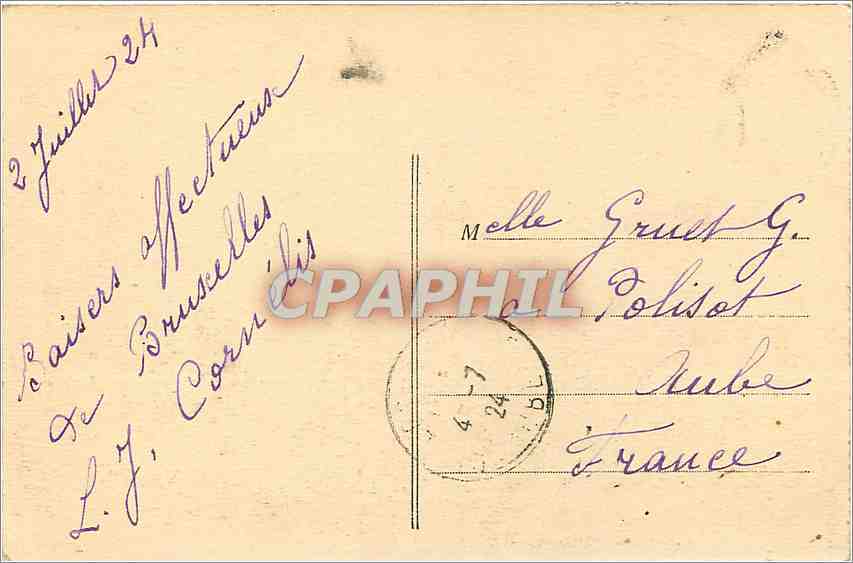 2 Juillet 24
Baisers affectueux
de Bruxelles
L. J. Cornélis
Melle Gruet G.
a Polisot
Aube
France
4-7
24
UBE
CPAPHIL